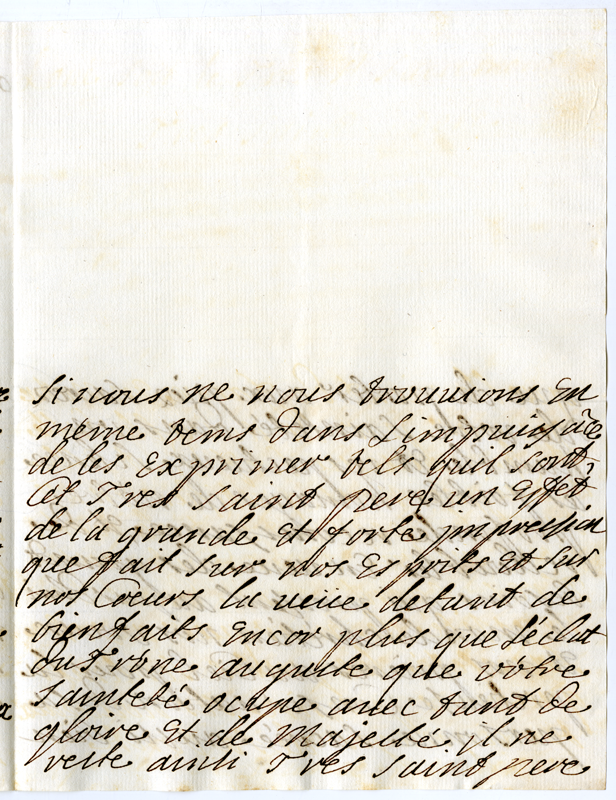 si nous ne nous trouuions En
méme tems dans Limpuissāce
de les Exprimer tels quil sont,
Cet Tres saint pere un Effet
de la grande Et forte jmpression
que fait sur nos Esprits Et sur
nos Coeurs la veüe de tant de
bienfaits Encor plus que L'éclat
du Trône auguste que vôtre
sainteté ocupe avec tant de
gloire Et de Majesté. il ne
reste ainsi Tres saint pere